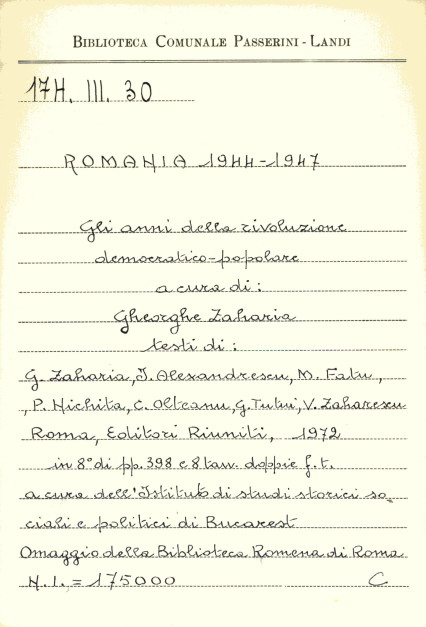 BIBLIOTECA COMUNALE PASSERINI - LANDI
17H. III. 30
ROMANIA 1944-1947
Gli anni della rivoluzione
democratico-popolare
a cura di:
Gheorghe Zaharia
testi di:
G. Zaharia, I. Alexandrescu, M. Fatu,
, P. Nichita, C. Olteanu, G. Tutui, V. Zaharescu
Roma, Editori Riuniti, 1972
in 8° di pp. 398 e 8 tav. doppie f. t.
a cura dell'Istituto di studi storici so_
ciali e politici di Bucarest
Omaggio della Biblioteca Romena di Roma
N. I. = 175000 C